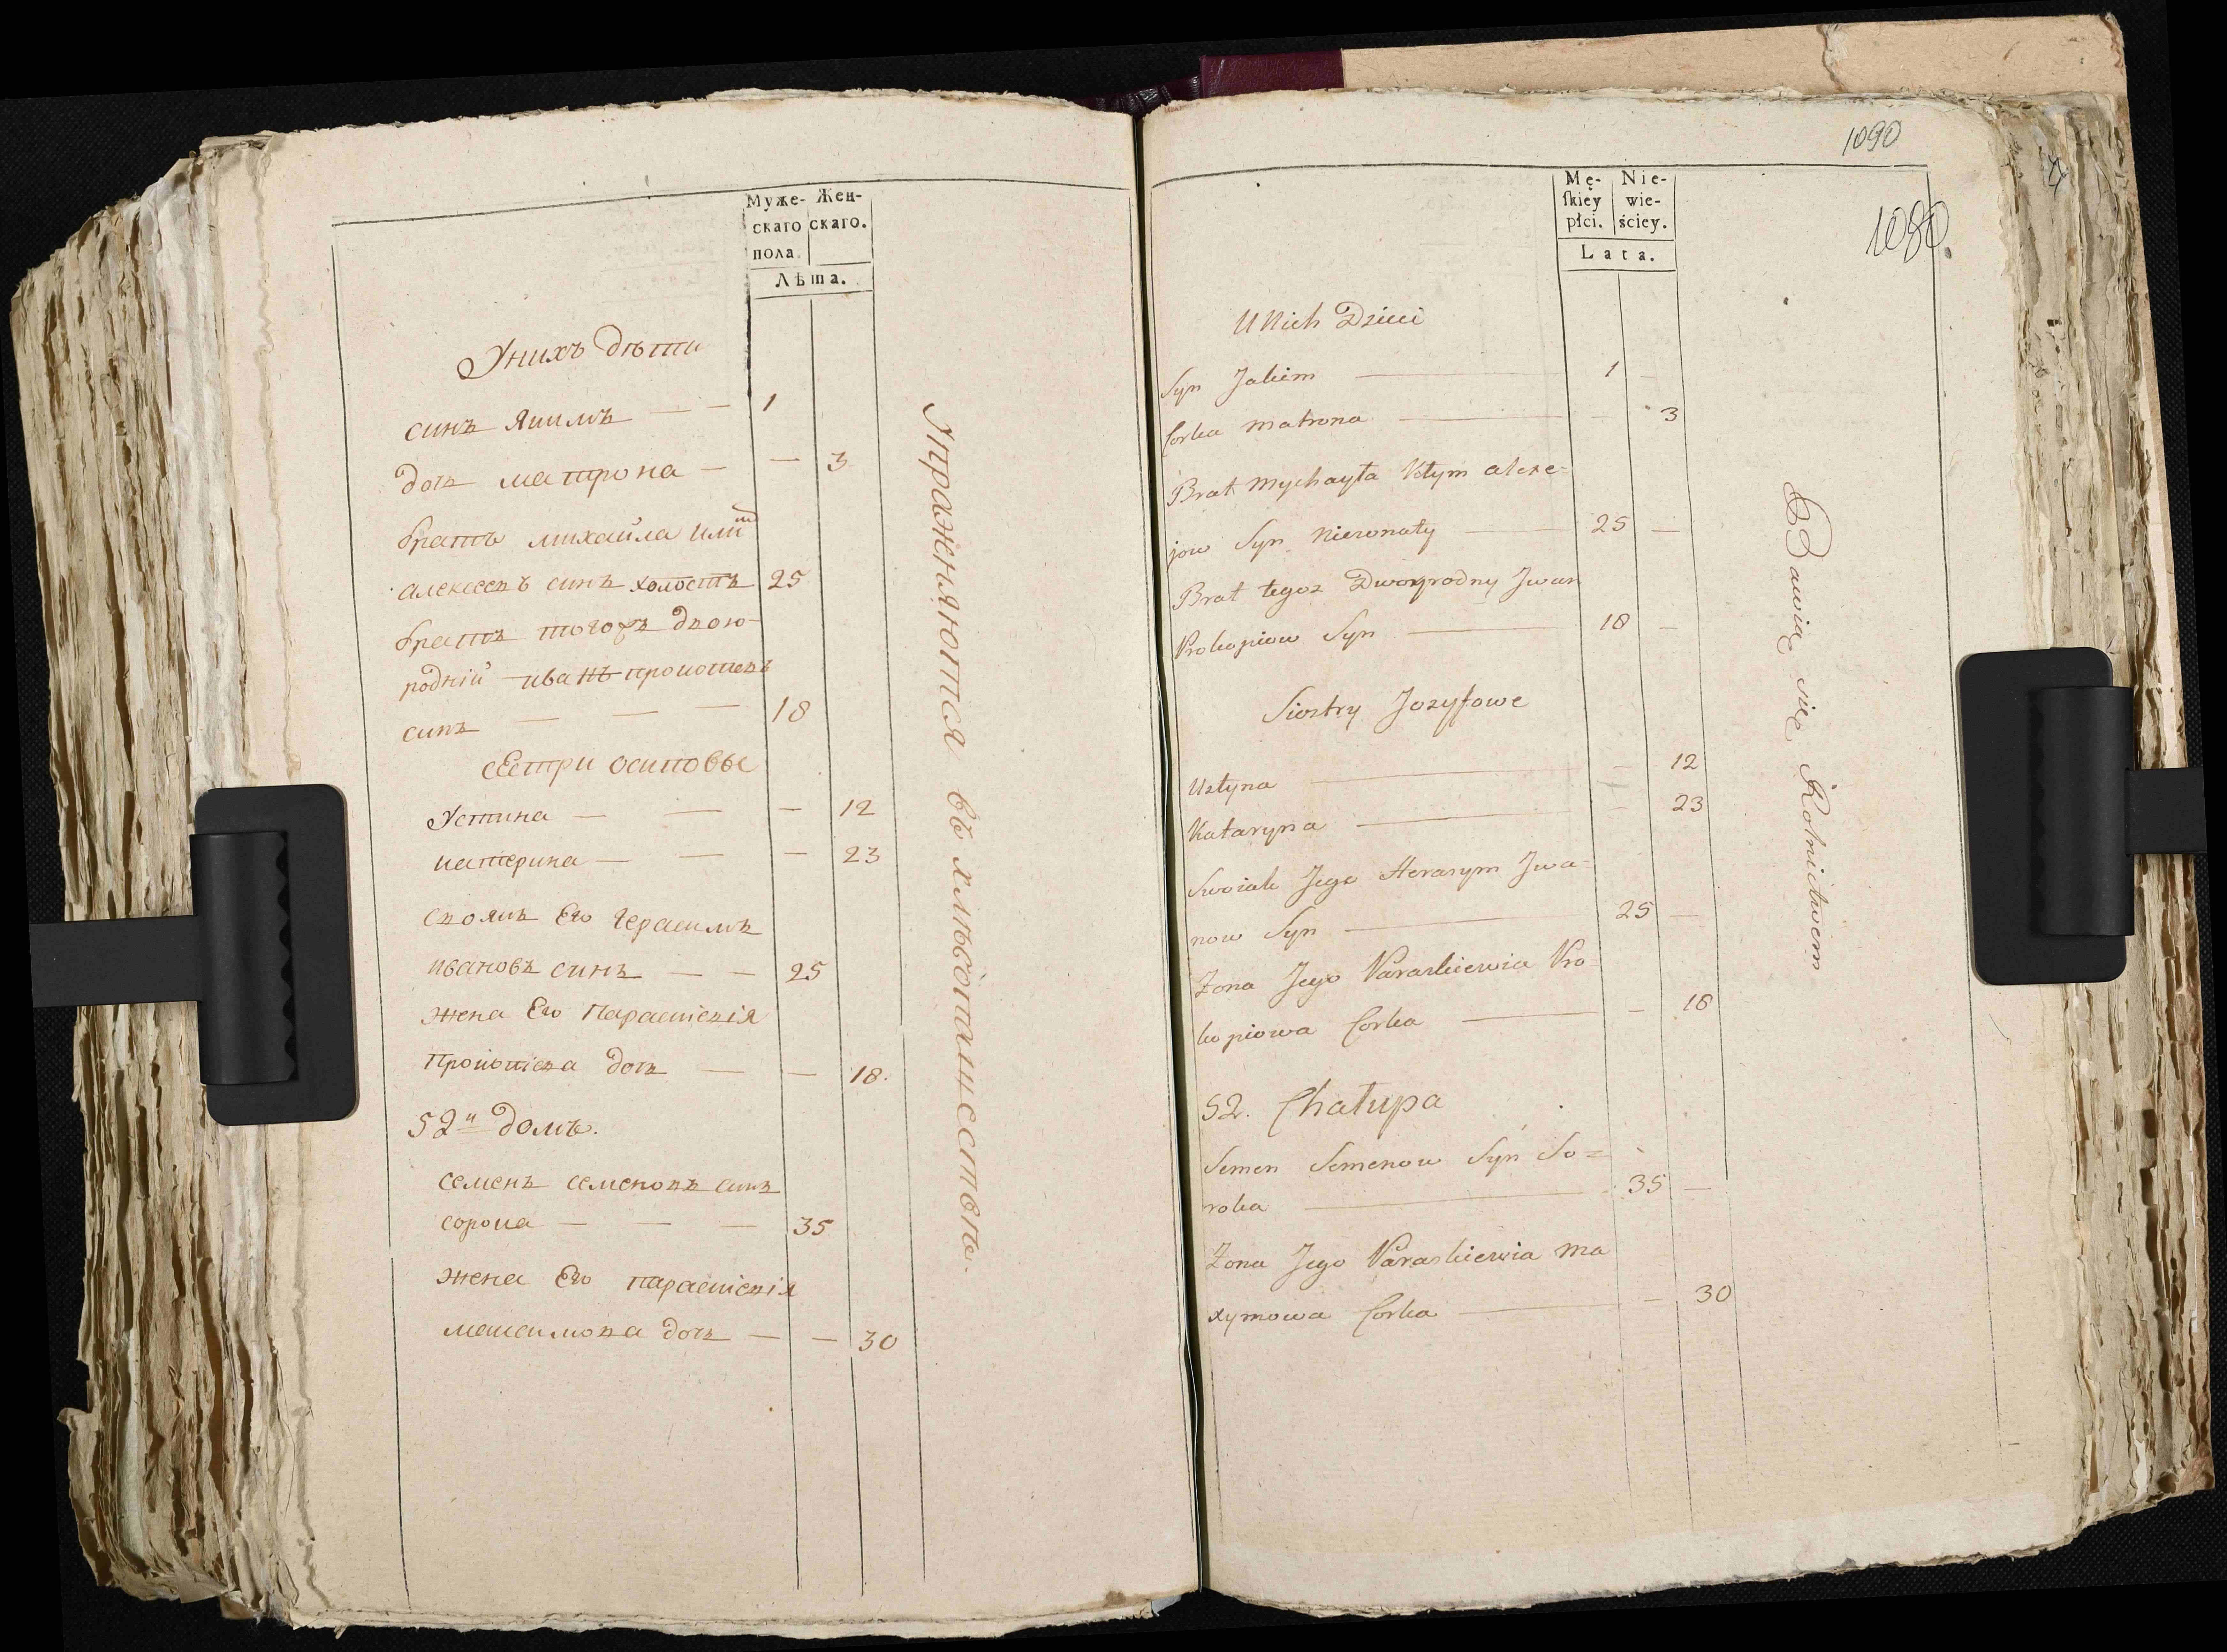 Муже- Жен-
скаго скаго.
пола.
Лѣта.
У нихъ дѣти
синъ Якимъ — — 1
дочь матрона — — 3
братъ михайла
алексеевъ синъ холостъ 25
братъ тогожъ двою-
родній иванъ прокопіевъ
синъ — — — 18
сестри осиповы
Устина — — — 12
катерина — — — 23
своякъ Его Герасимъ
ивановъ синъ — — 25
жена Его Параскевія
Прокопіева дочь — — 18.
52й домъ.
семенъ семеновъ синъ
сорока — — — 35
жена Его параскевія
максимова дочь — — 30
Упражняются въ хлѣбопашествѣ.
1090
1080
Mę- Nie-
ſkiey wie-
płci. ściey.
Lata.
U Nich Dzieci
Syn Jakim — 1 —
Corka Matrona — — 3
Brat Mychayła Ktym alexe=
jow Syn Niezonaty — 25 —
Brat tegoz Dwoyrodny Jwan
Prokopiow Syn — 18 —
Siostry Jozyfowe
Ustyna — — 12
Kataryna — — 23
Swoiak Jego Herasym Jwa-
now Syn — 25 —
Zona Jego Paraskiewia Pro-
kopiowa Corka — — 18
52. Chałupa
Semen Semenow Syn So=
roka — 35 —
Zona Jego Paraskiewia Ma
xymowa Corka — — 30
Bawią się Rolnictwem